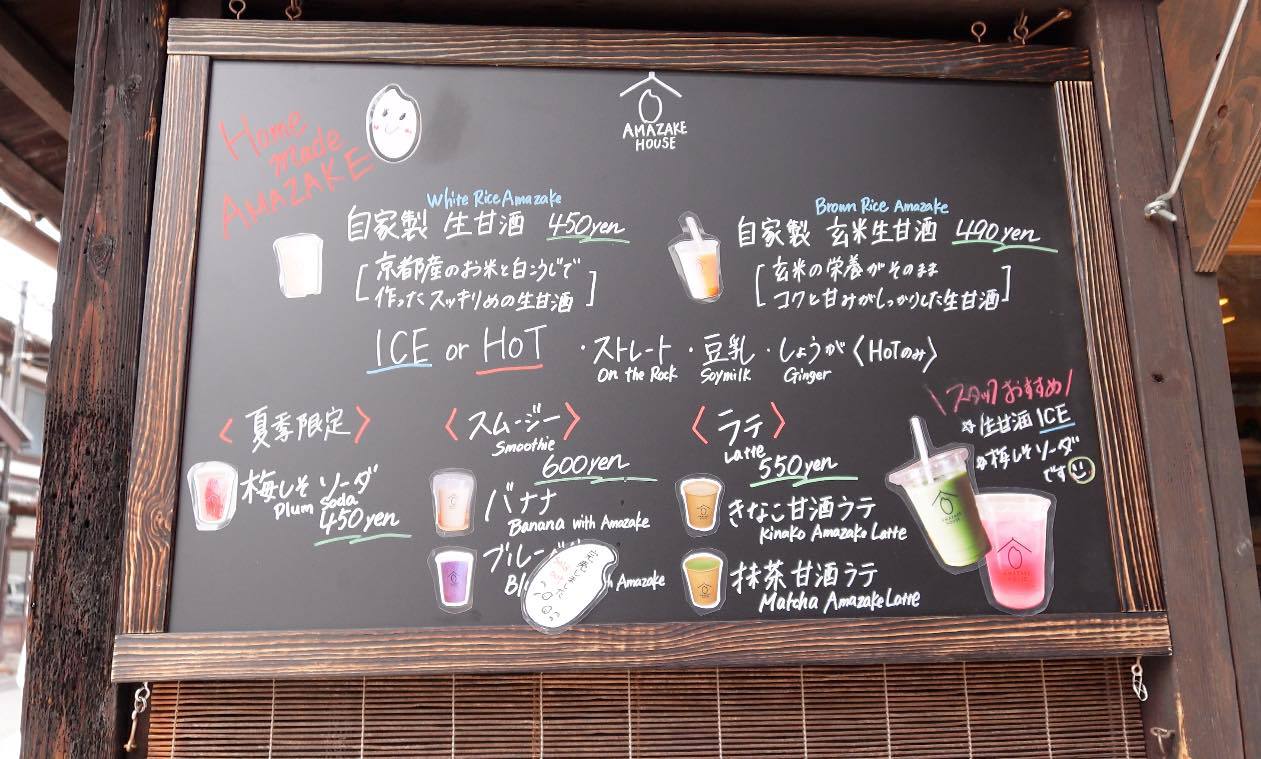 AMAZAKE
HOUSE
Home
made
AMAZAKE
White Rice Amazake
自家製 生甘酒 450yen
京都産のお米と白こうじで
作ったスッキリめの生甘酒
Brown Rice Amazake
自家製 玄米生甘酒 490yen
玄米の栄養がそのまま
コクと甘みがしっかりした生甘酒
ICE or HOT ・ストレート ・豆乳 ・しょうが〈HOTのみ〉
On the Rock Soymilk Ginger
〈夏季限定〉
梅しそソーダ
Plum Soda
450yen
〈スムージー〉
Smoothie
600yen
バナナ
Banana with Amazake
ブルー
Amazake
〈ラテ〉
Latte
550yen
きなこ甘酒ラテ
Kinako Amazake Latte
抹茶甘酒ラテ
Matcha Amazake Latte
\スタッフおすすめ/
☆生甘酒 ICE
☆梅しそソーダ
です
AMAZAKE
HOUSE